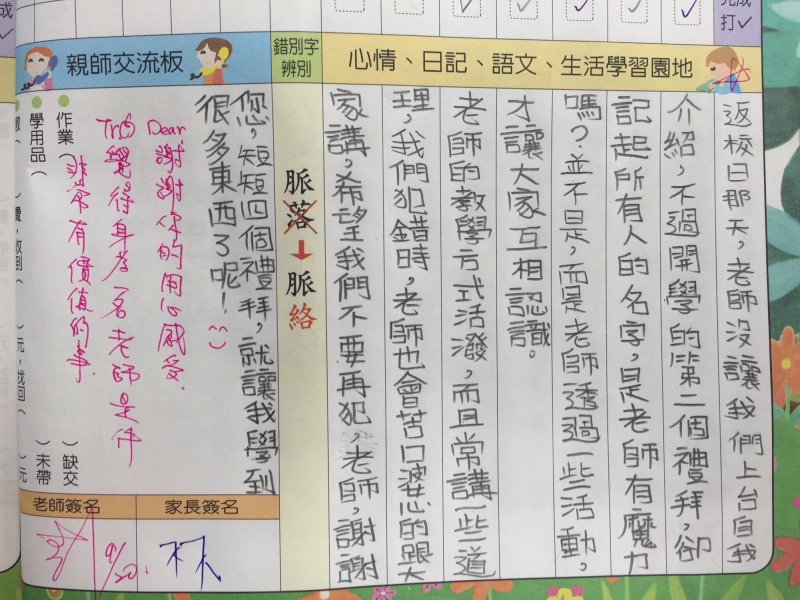 成
打✓
完成
打✓
心情、日記、語文、生活學習園地
錯別字
辨別
親師交流板
返校日那天，老師沒讓我們上台自我
介紹，不過開學的第二個禮拜，卻
記起所有人的名字，是老師有魔力
嗎？並不是，而是老師透過一些活動，
才讓大家互相認識。
老師的教學方式活潑，而且常講一些道
理，我們犯錯時，老師也會苦口婆心的跟大
家講，希望我們不要再犯，老師，謝謝
脈落↓脈絡
您，短短四個禮拜，就讓我學到
很多東西了呢！
Dear
謝謝你的用心感受.
覺得身為一名老師是件
非常有價值的事.
作業（ ）缺交
學用品（ ）未帶
費，收到（ ）元，找回（ ）元
家長簽名
老師簽名
林
9/20.